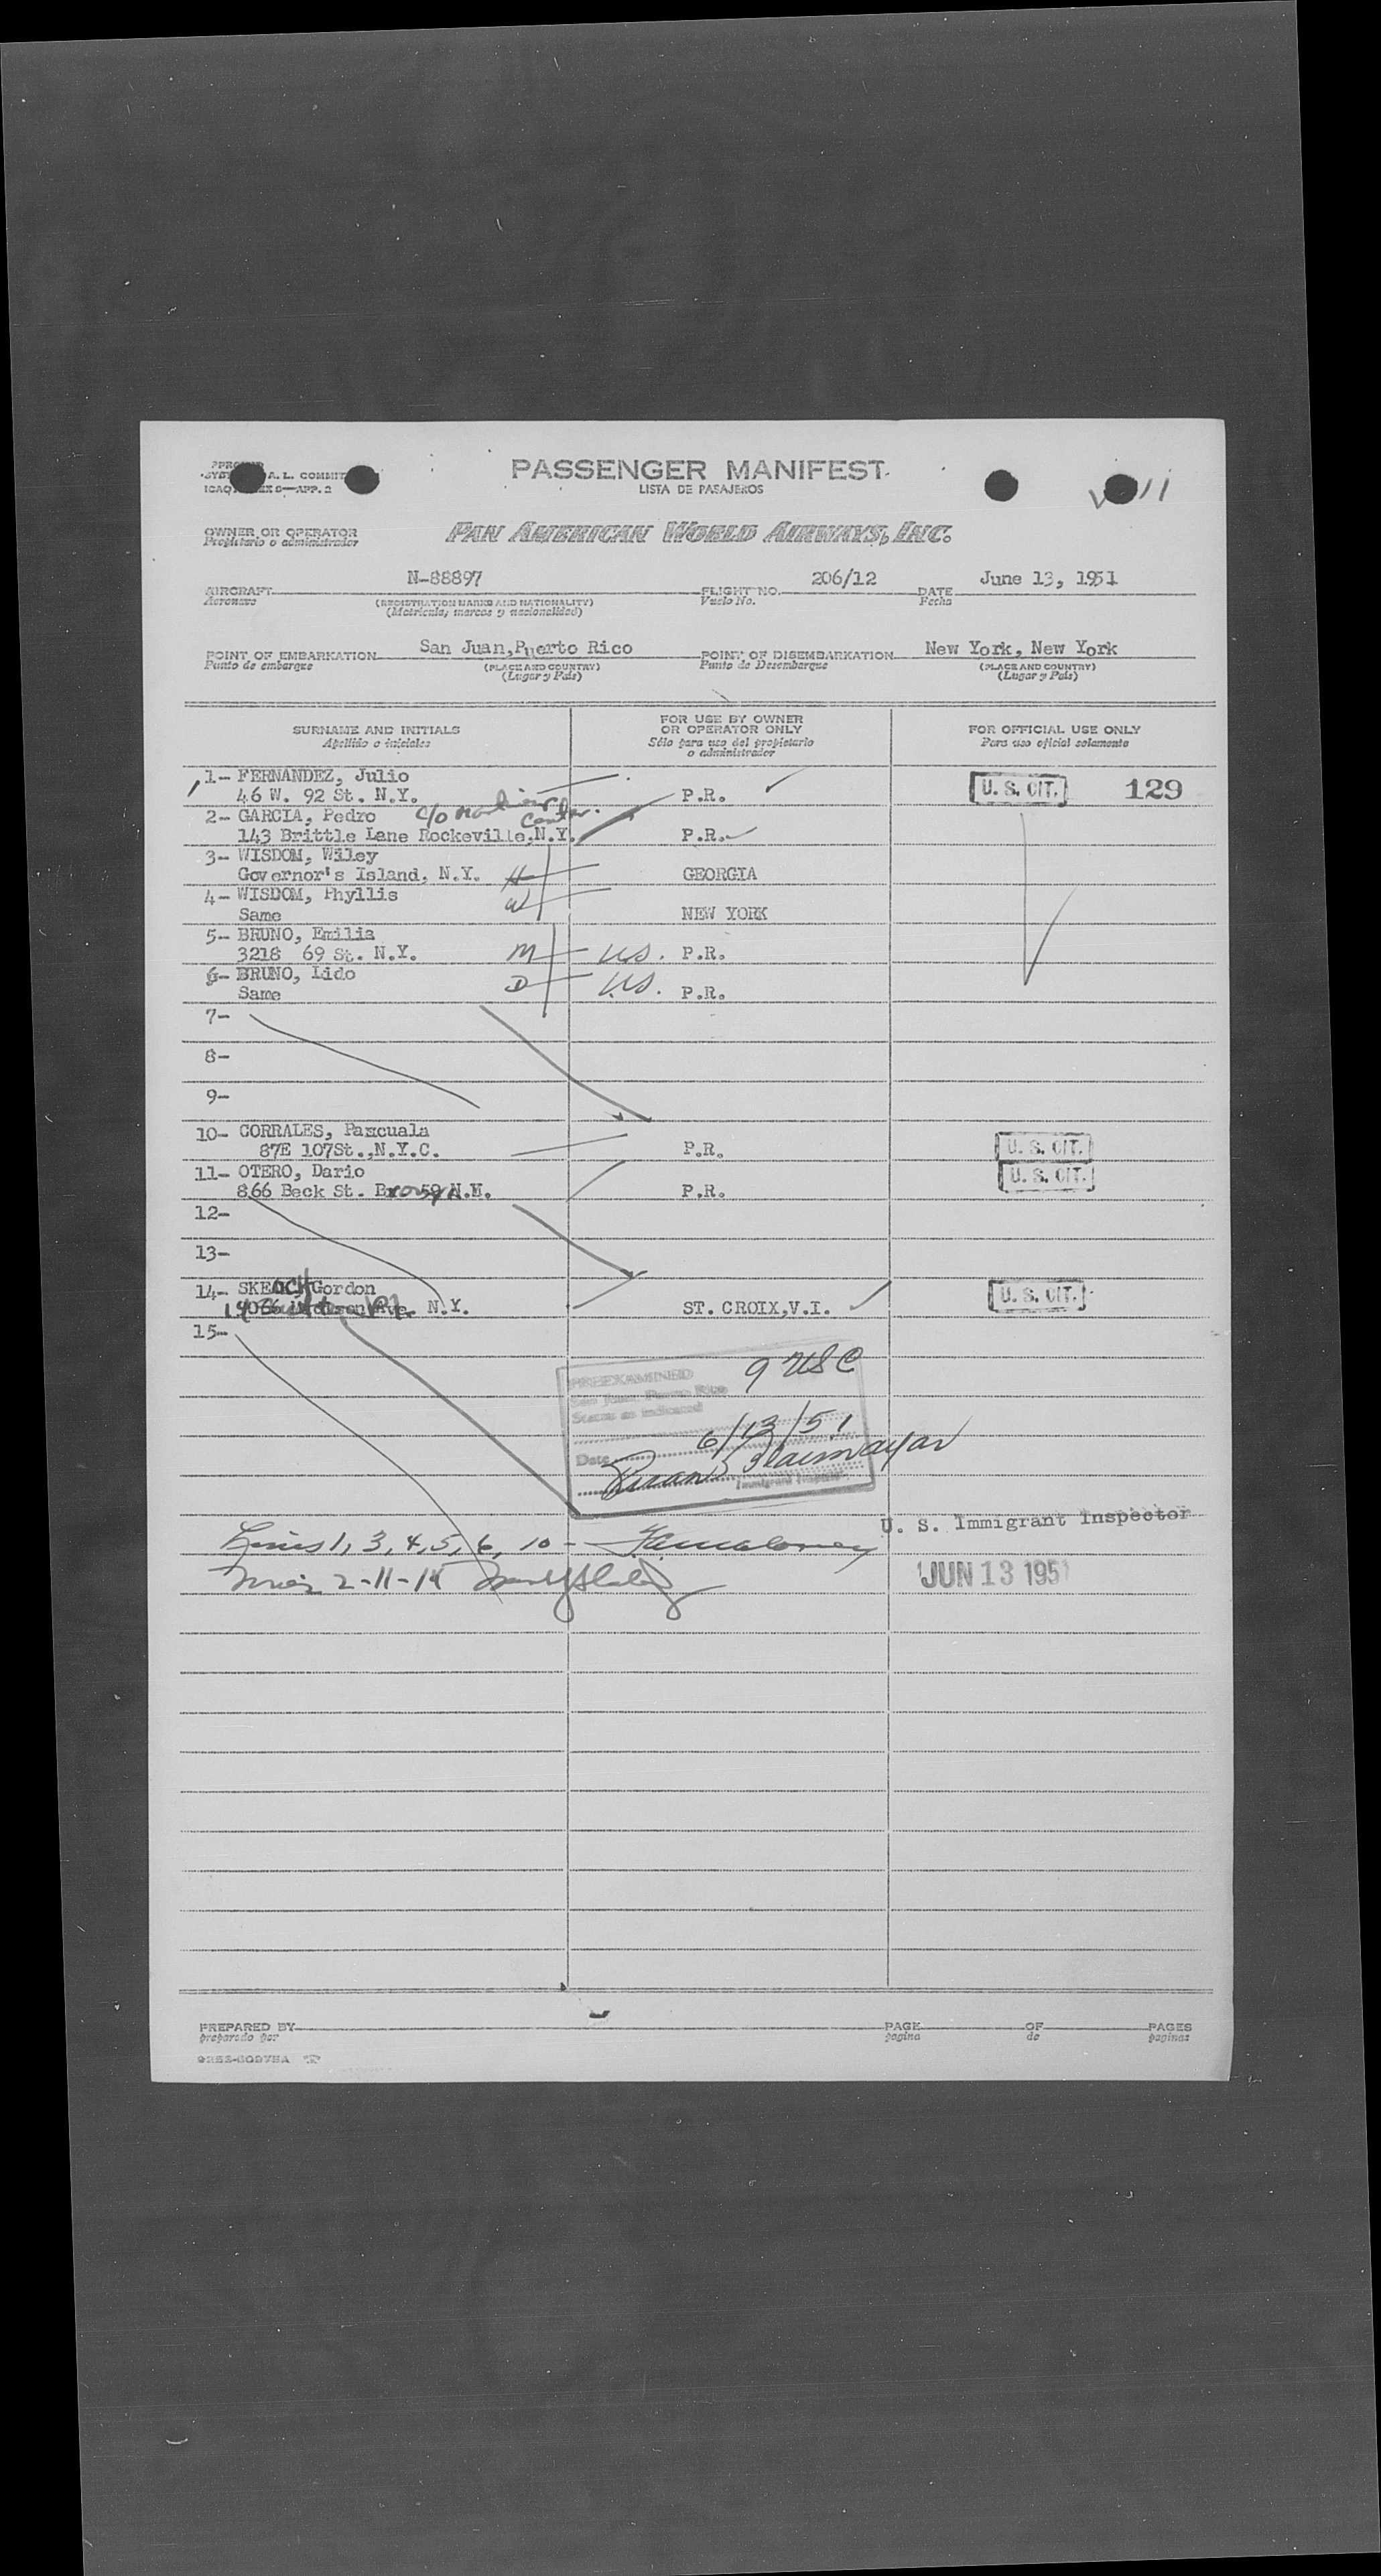 PASSENGER MANIFEST
LISTA DE PASAJEROS
A. L. COMMIT
APP. 2
OWNER OR OPERATOR
Propietario o administrador
PAN AMERICAN WORLD AIRWAYS, INC.
N-88897 206/12 June 13, 1951
AIRCRAFT FLIGHT NO. DATE
Aeronave (REGISTRATION MARKS AND NATIONALITY) Vuelo No. Fecha
(Matricula, marcas y nacionalidad)
San Juan, Puerto Rico New York, New York
POINT OF EMBARKATION POINT OF DISEMBARKATION
Punto de embarque (PLACE AND COUNTRY) Punto de Desembarque (PLACE AND COUNTRY)
(Lugar y Pais) (Lugar y Pais)
SURNAME AND INITIALS FOR USE BY OWNER OR OPERATOR ONLY FOR OFFICIAL USE ONLY
Apellido e iniciales Sólo para uso del propietario o administrador Para uso oficial solamente
1- FERNANDEZ, Julio
46 W. 92 St. N.Y. P.R. U. S. CIT. 129
2- GARCIA, Pedro c/o
143 Brittle Lane Rockeville, N.Y. P.R.
3- WISDOM, Wiley
Governor's Island, N.Y. H GEORGIA
4- WISDOM, Phyllis
Same W NEW YORK
5- BRUNO, Emilia
3218 69 St. N.Y. M U.S. P.R.
6- BRUNO, Lido
Same D U.S. P.R.
7-
8-
9-
10- CORRALES, Pascuala
87E 107St.,N.Y.C. P.R. U. S. CIT.
11- OTERO, Dario U. S. CIT.
866 Beck St. P.R.
12-
13-
14- SKEOCH Gordon U. S. CIT.
Ave. N.Y. ST. CROIX,V.I.
15-
9 USC
PREEXAMINED
San Juan, Puerto Rico
Status as indicated
Date 6/13/51
Immigrant Inspector
U. S. Immigrant Inspector
Lines 1, 3, 4, 5, 6, 10 -
Lines 2-11-14 JUN 13 1951
PREPARED BY PAGE OF PAGES
preparado por pagina de paginas